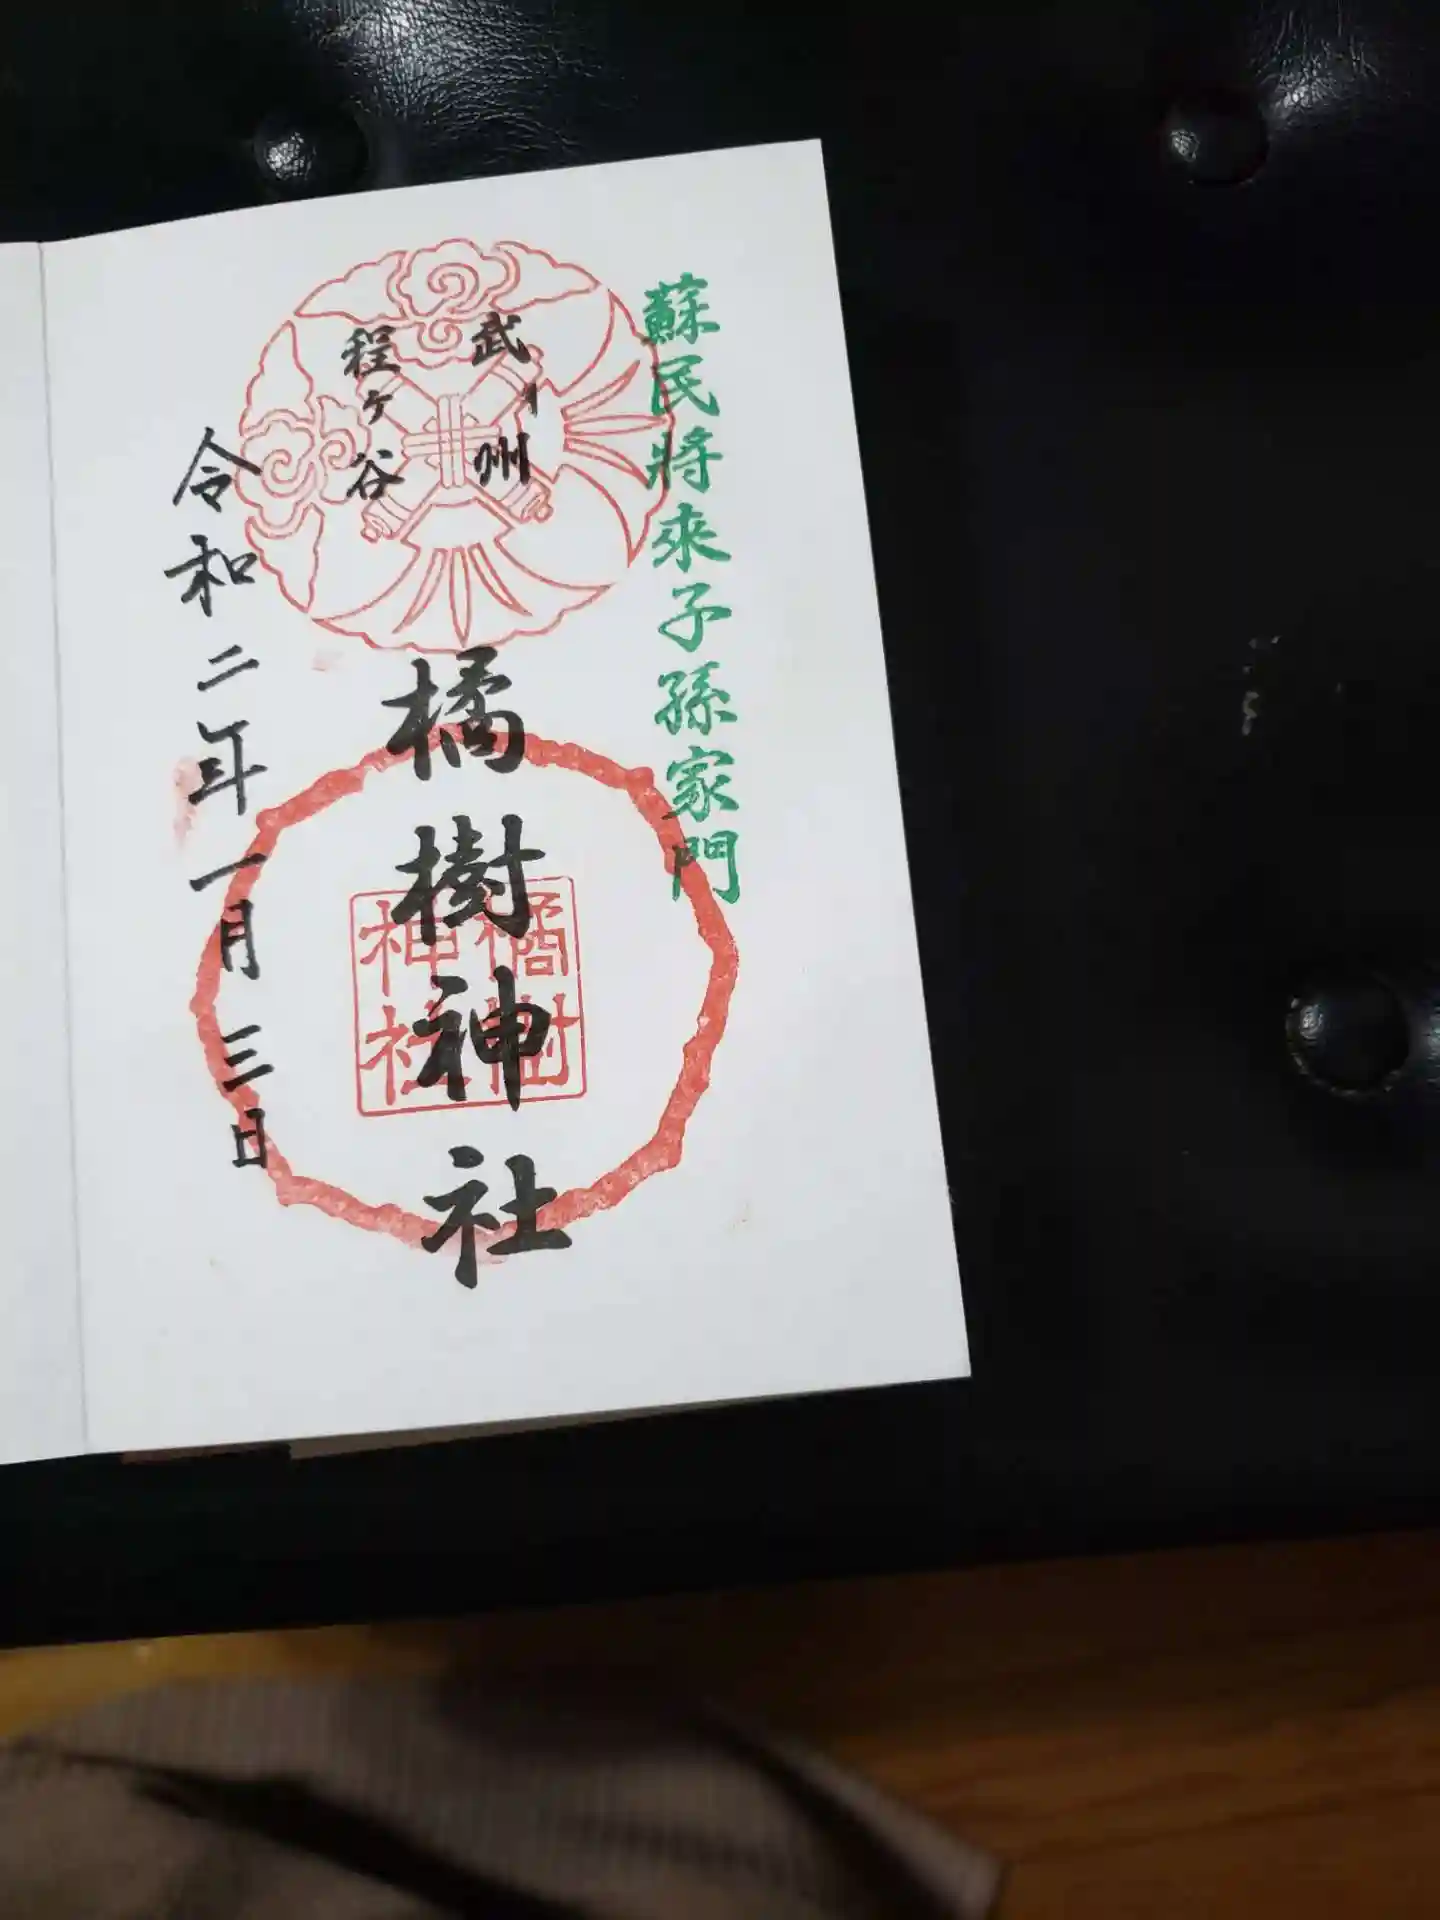 蘇民將來子孫家門
武州
程ヶ谷
橘樹神社
橘樹神社
令和二年一月三日